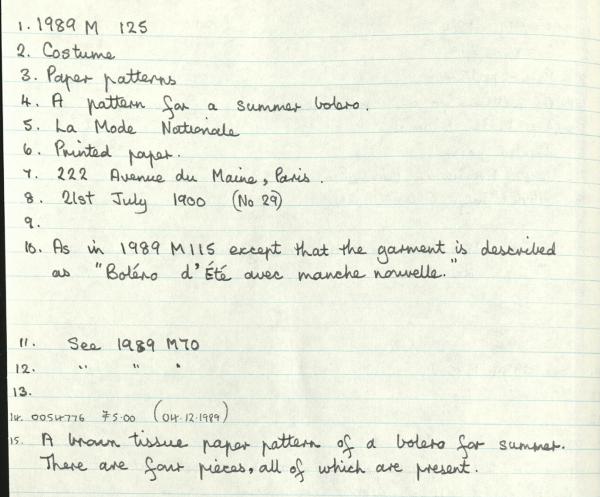 1. 1989 M 125
2. Costume
3. Paper patterns
4. A pattern for a summer bolero.
5. La Mode Nationale
6. Printed paper.
7. 222 Avenue du Maine, Paris.
8. 21st July 1900 (No 29)
9.
10. As in 1989 M115 except that the garment is described
as "Boléro d'Été avec manche nouvelle."
11. See 1989 M70
12. " " "
13.
14. 0054776 £5.00 (04.12.1989)
15. A brown tissue paper pattern of a bolero for summer.
There are four pieces, all of which are present.